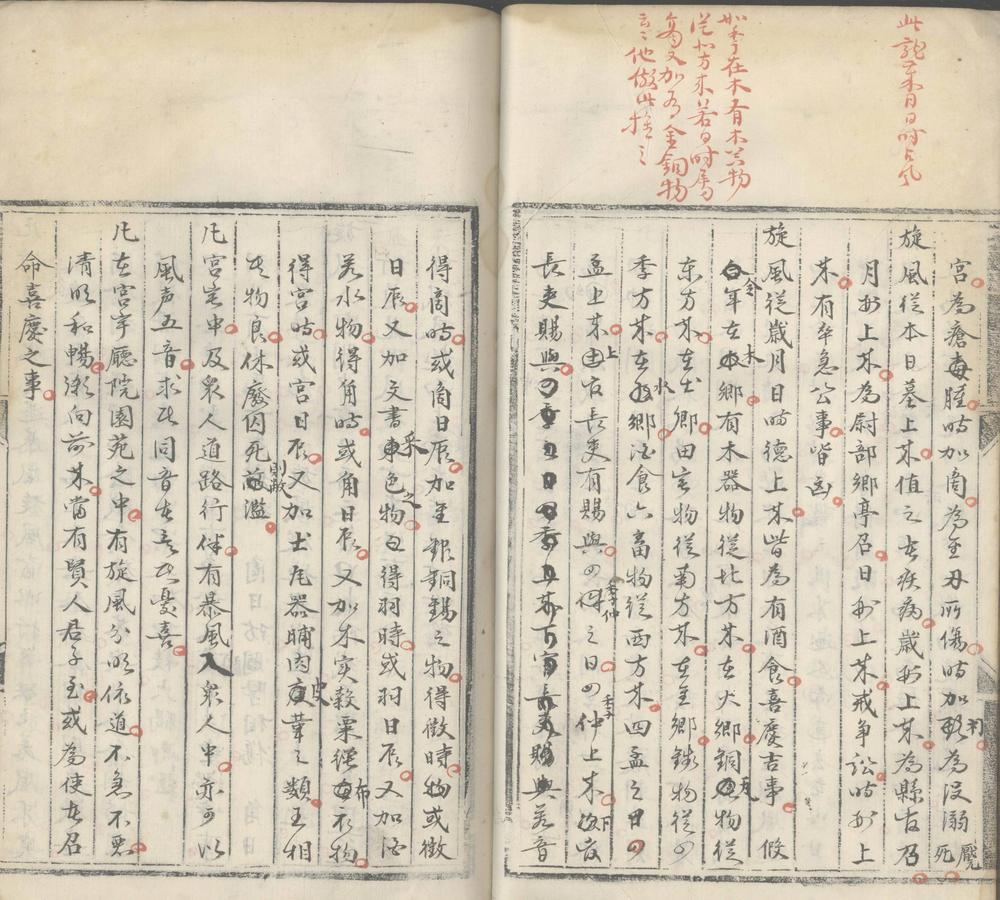 此旋來日日時占風
如季在木有木器物
從北方來若日時屬
為又加為金銅物
之他倣此推之
宮為瘡毒腫時加商為金刃所傷時加羽為沒溺死
旋風從本日墓上來值之者疾病歲刑上來為縣官召
月刑上來為尉部鄉亭召日刑上來戒爭訟時刑上
來有卒急公事皆凶
旋風從歲月日時德上來皆為有酒食喜慶吉事候
金年在木鄉有木器物從北方來在火鄉銅瓦物從
東方來在土鄉田宅物從南方來在金鄉錢物從
季方來在水鄉酒食六畜物從西方來四孟之日
孟上來上官長吏有賜與四仲之日四季仲上來下官
長吏賜與若音
得商時或商日辰加金銀銅錫之物得徵時物或徵
日辰又加文書采色之物得羽時或羽日辰又加酒
若水物得角時或角日辰又加木實穀粟繩布衣物
得宮時或宮日辰又加土瓦器脯肉皮革之類王相
其物良休廢囚死則敗濫
凡宮宅中及眾人道路行伴有暴風入眾人中亦可以
風声五音求其同音者言其憂喜
凡在宮宇廳院園苑之中有旋風分明依道不急不悪
清明和暢漸向前來當有賢人君子至或為使者召
命喜慶之事